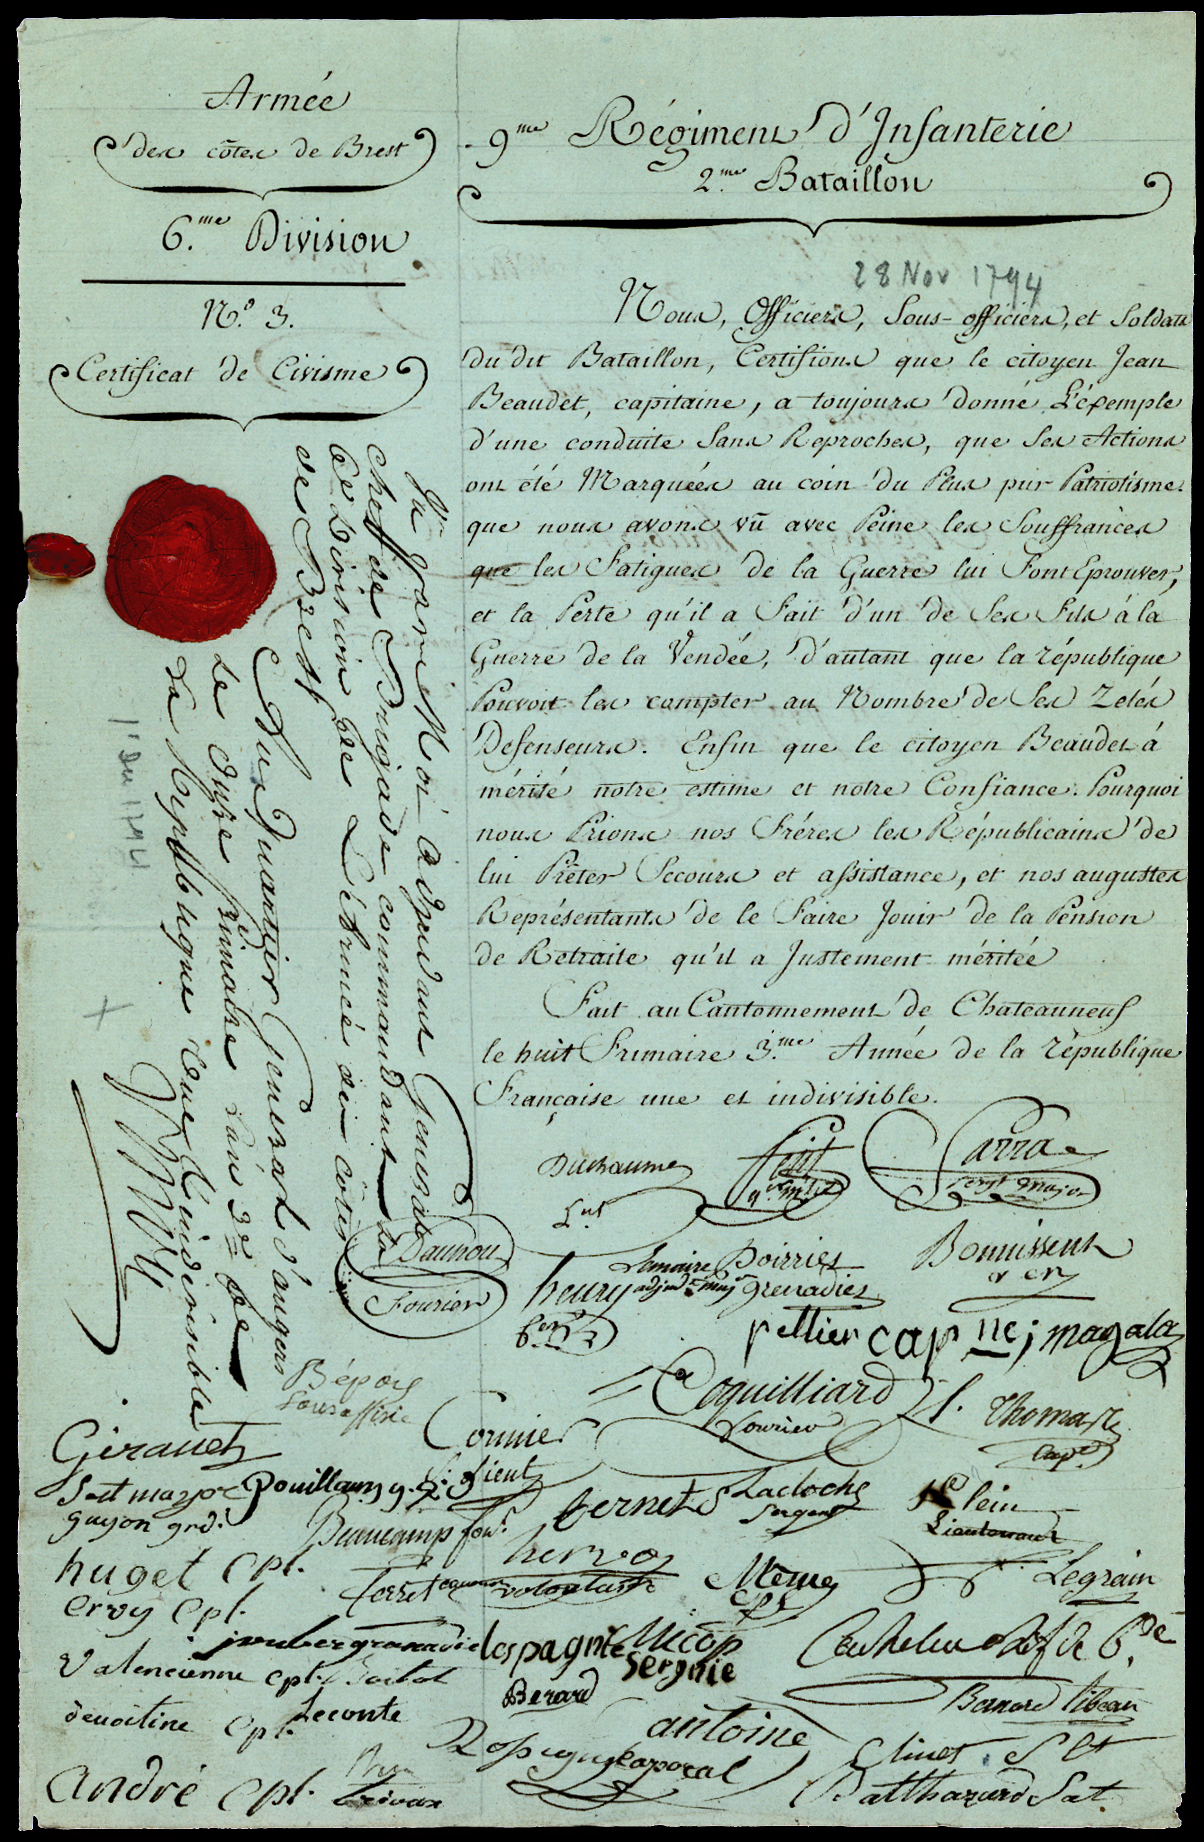 Armée
des côtes de Brest
6.me Division
N.o 3.
Certificat de Civisme
9me Régiment d'Infanterie
2.me Bataillon
28 Nov 1794
Nous, Officiers, Sous-officiers, et Soldats
du dit Bataillon, Certifions que le citoyen Jean
Beaudet, capitaine, a toujours donné L'éxemple
d'une conduite Sans Reproches, que Ses Actions
ont été Marquées au coin du Plus pur Patriotisme.
que nous avons vû avec Peine les Souffrances
que les Fatigues de la Guerre lui Font Eprouver,
et la Perte qu'il a Fait d'un de Ses Fils à la
Guerre de la Vendée, d'autant que la république
Pouvoit les compter au Nombre de Ses Zelés
Defenseurs. Enfin que le citoyen Beaudet à
mérité notre estime et notre Confiance. Pourquoi
nous Prions nos Fréres les Républicains de
lui Prêter Secours et assistance, et nos augustes
Représentants de le Faire Jouir de la Pension
de Retraite qu'il a Justement méritée
Fait au Cantonnement de Chateauneuf
le huit Frimaire 3.me Année de la république
Française une et indivisible.
Vu par Moi adjudant general
chef de Brigade commandant la
6e Division de L'armée des côtes
de Brest
Au Quartier general d'angers
Le onze frimaire L'an 3e de
la Republique une & indivisible
1' Dec 1794
Duchaume
Lnt
Petit
Sarra
Sergt major
Daunou
Fourier
henry
Lemaire
adjud
Poirrier
grenadier
Bonnissent
pettier cap ne; magala
Coquilliard
Fourier
Thomas
Cape
Giraud
Sert mayor
guyon grd.
Cormier
S. Lieut
Beaucamp four.
bernet
Ladoche
Sergent
Klein
Lieutenant
huget cpl.
ervy cpl.
hervo
volontaire
Meme
cpl
Legrain
jouber granadie
lespagnie
Nicop
sergnie
chef de b.de
Valencienne cpl.
Berard
Leconte
cpl.
antoine
Caporal
andré cpl.
Balthazard Sat